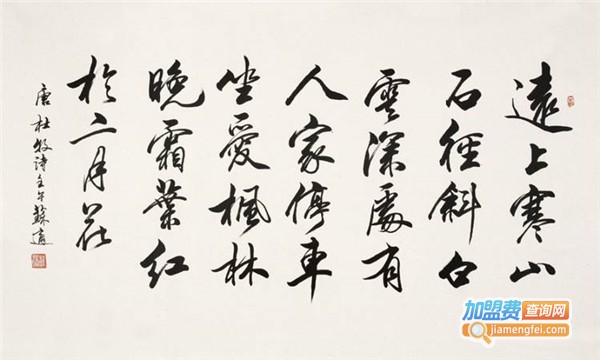 遠上寒山
石徑斜白
雲深處有
人家停車
坐愛楓林
晚霜葉紅
於二月花
唐杜牧詩壬午蘇適
加盟费查询网
jiamengfei.com